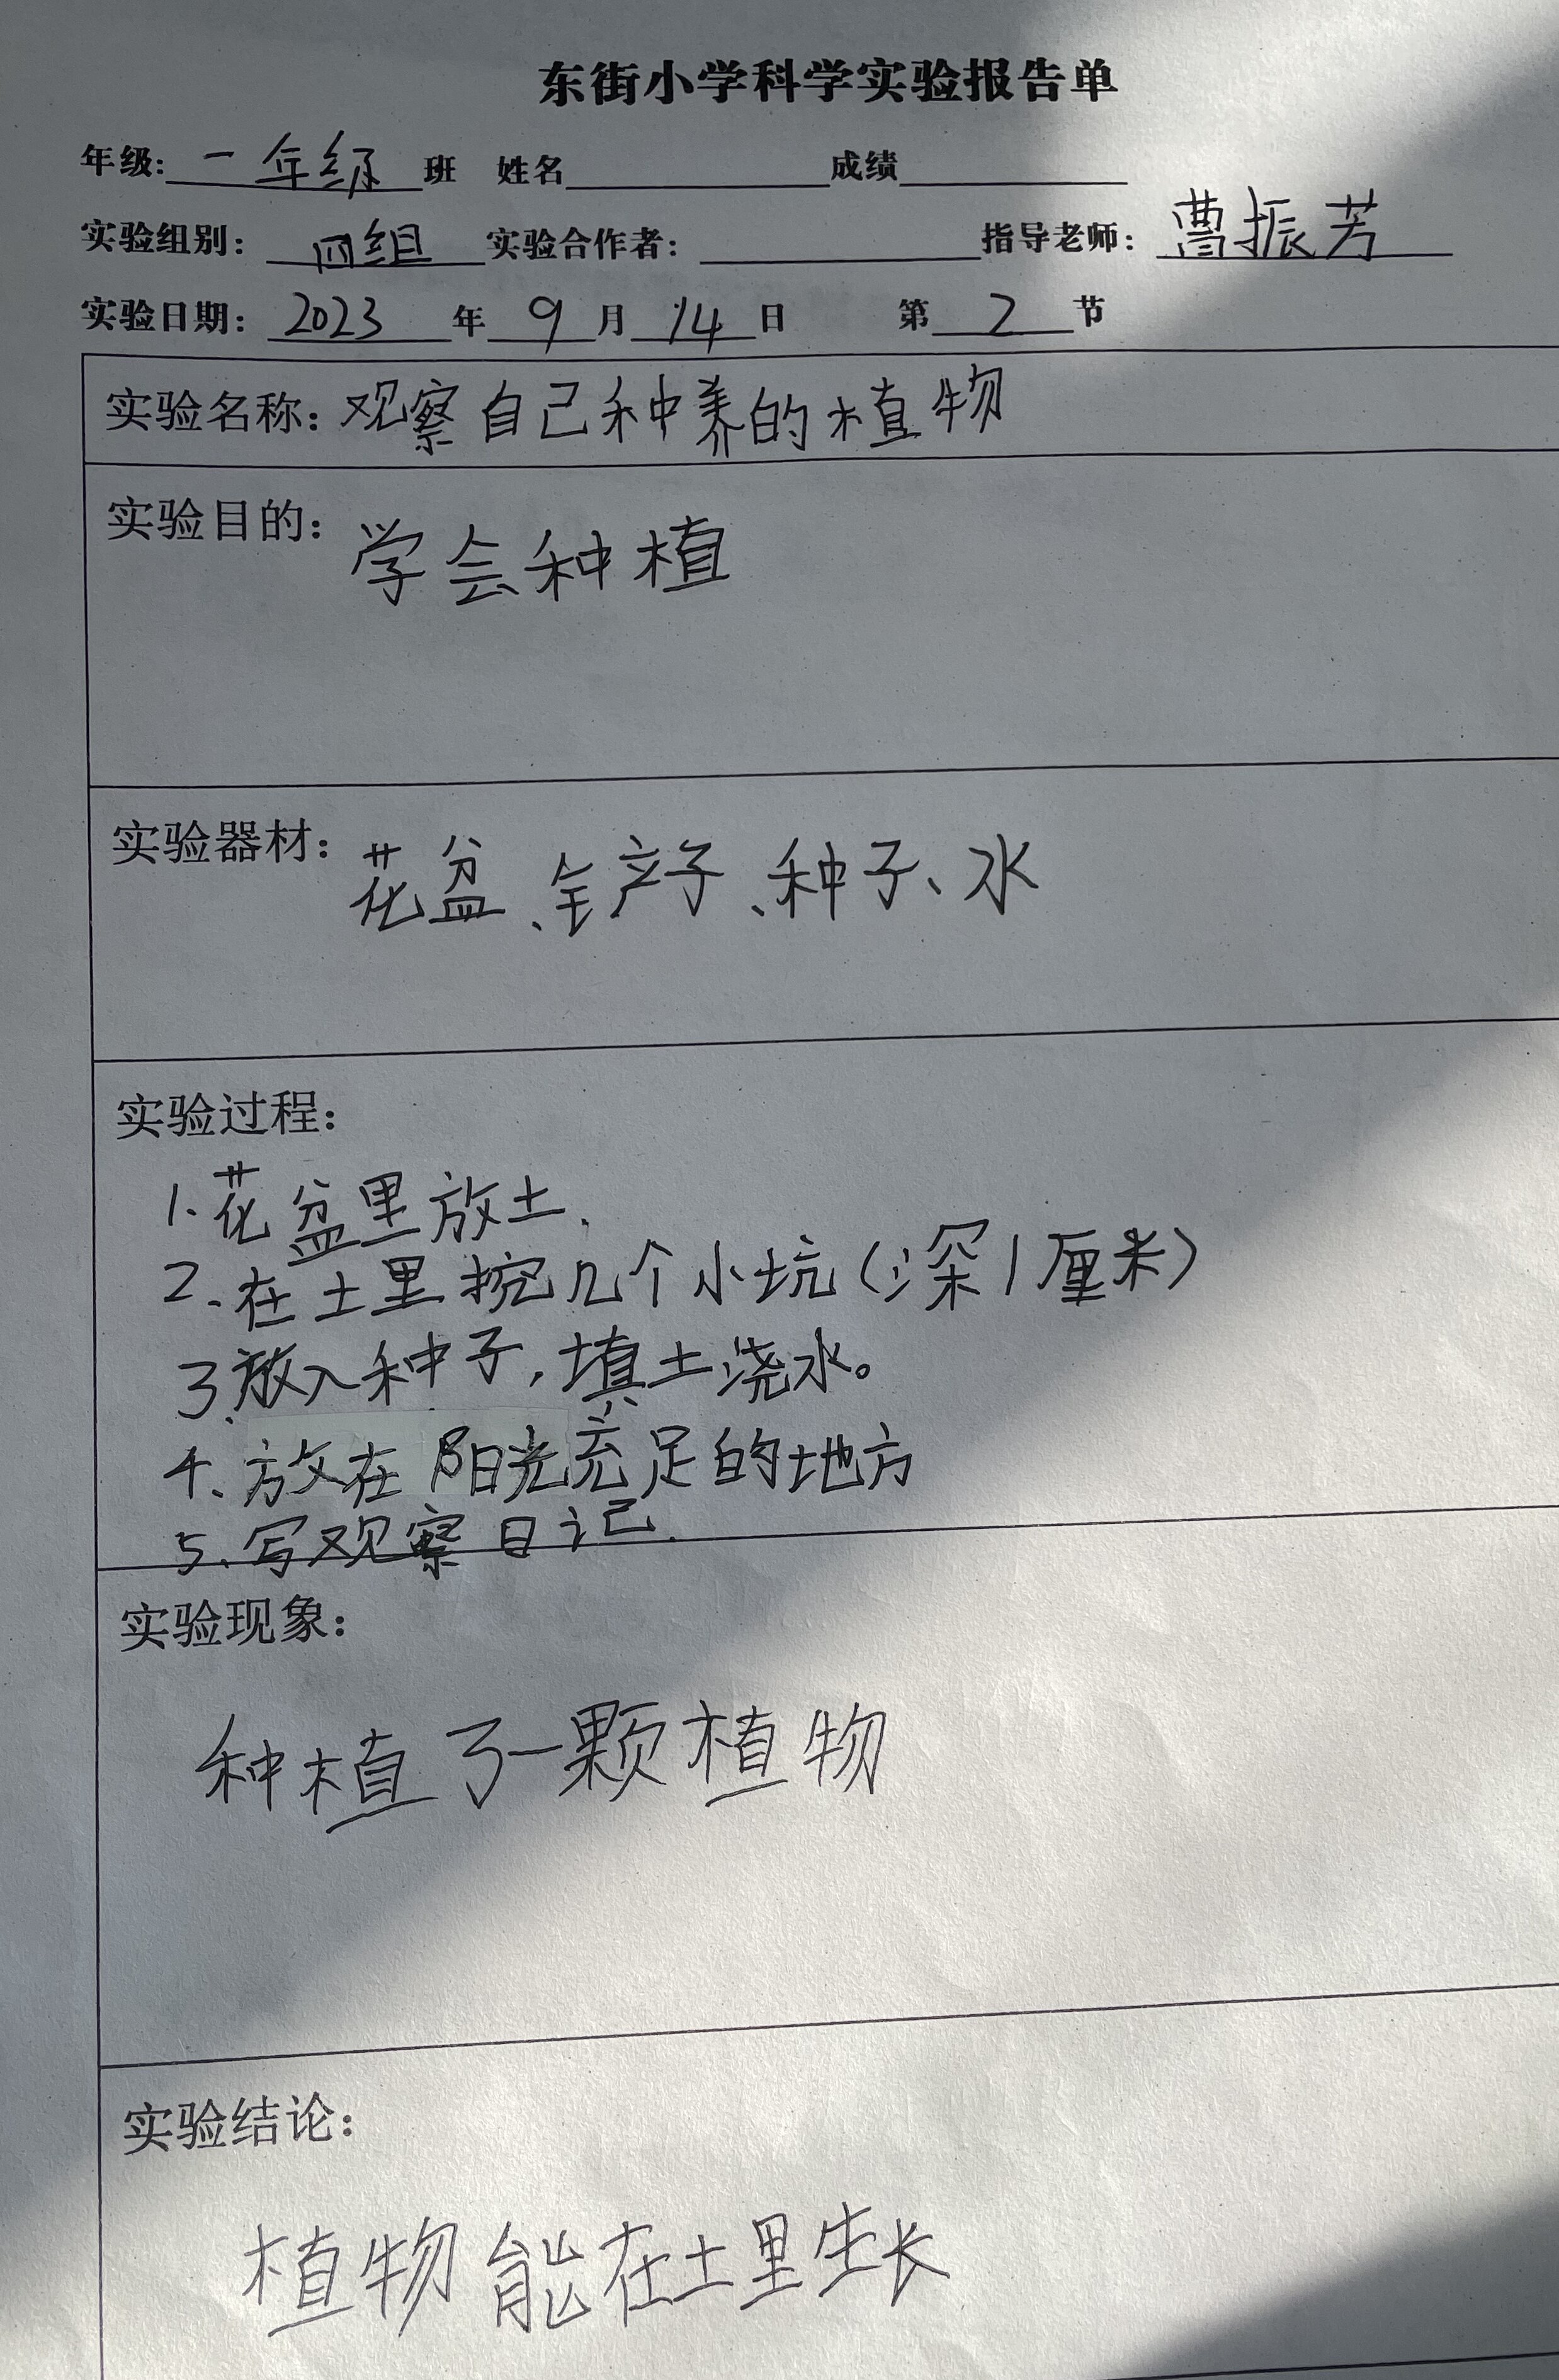 东街小学科学实验报告单
年级:一年级班 姓名 成绩
实验组别: 四组 实验合作者: 指导老师: 曹振芳
实验日期: 2023年9月14日 第2节
实验名称: 观察自己种养的植物
实验目的: 学会种植
实验器材: 花盆、铲子、种子、水
实验过程:
1.花盆里放土.
2.在土里挖几个小坑(深1厘米)
3.放入种子,填土浇水。
4.放在阳光充足的地方
5.写观察日记.
实验现象:
种植了一颗植物
实验结论:
植物能在土里生长